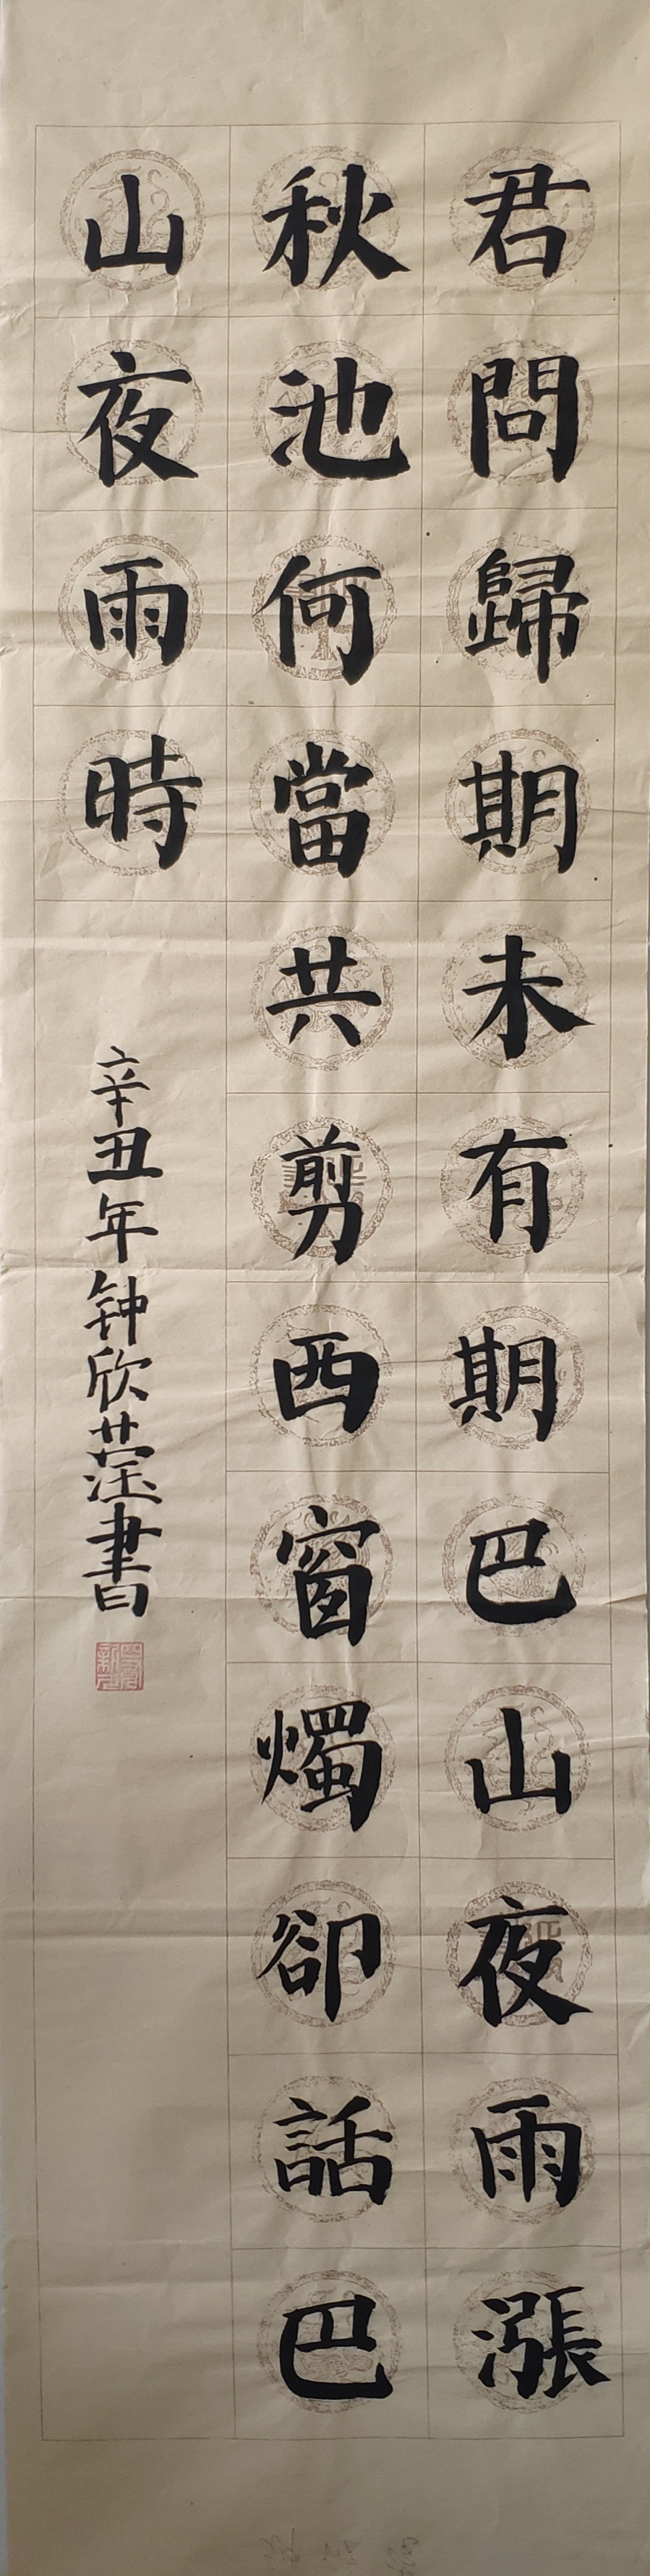 君問歸期未有期巴山夜雨漲
秋池何當共剪西窗燭卻話巴
山夜雨時
辛丑年钟欣滢書